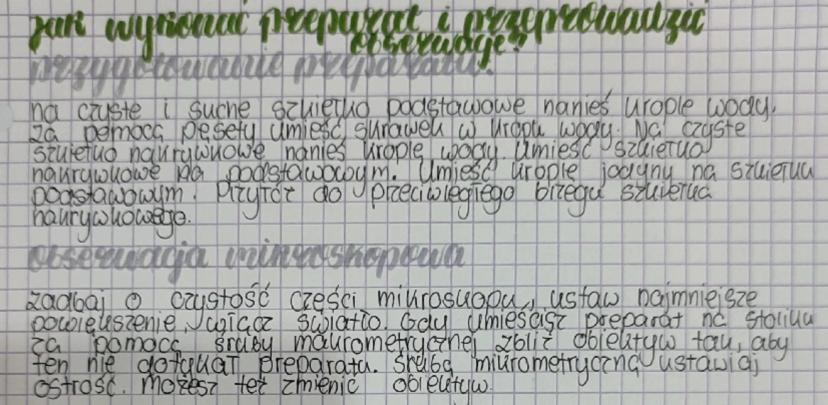 jak wykonać preparat i przeprowadzić
obserwację?
przygotowanie preparatu:
na czyste i suche szkiełko podstawowe nanieś kroplę wody.
za pomocą pęsety umieść skrawek w kropli wody. Na czyste
szkiełko nakrywkowe nanieś kroplę wody. Umieść szkiełko
nakrywkowe na podstawowym. Umieść kroplę jodyny na szkiełku
podstawowym. Przyłóż do przeciwległego brzegu szkiełka
nakrywkowego.
obserwacja mikroskopowa
zadbaj o czystość części mikroskopu, ustaw najmniejsze
powiększenie, włącz światło. Gdy umieścisz preparat na stoliku
za pomocą śruby makrometrycznej zbliż obiektyw tak, aby
ten nie dotykał preparatu. Śrubą mikrometryczną ustawiaj
ostrość. możesz też zmienić obiektyw.